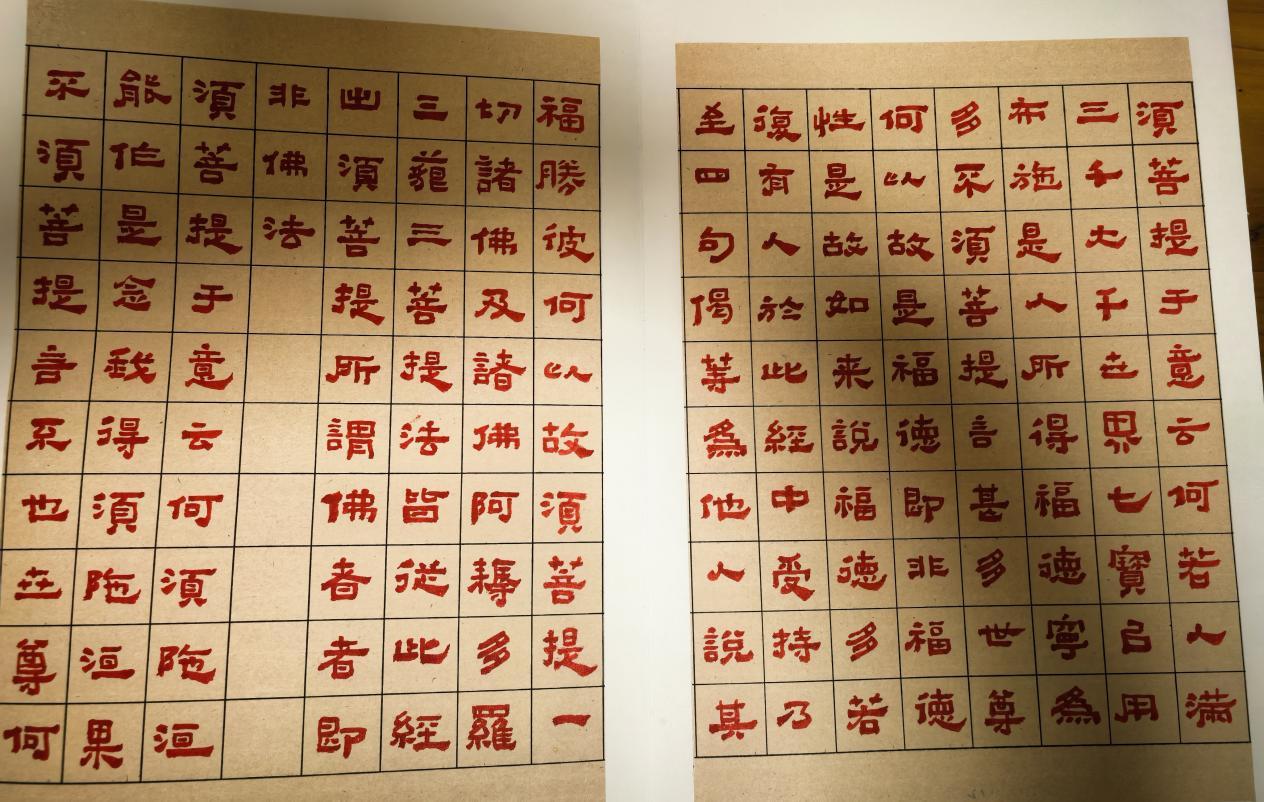 須菩提于意云何若人滿
三千大千世界七寶㠯用
布施是人所得福德寧為
多不須菩提言甚多世尊
何以故是福德即非福德
性是故如来說福德多若
復有人於此經中受持乃
至四句偈等為他人說其
福勝彼何以故須菩提一
切諸佛及諸佛阿耨多羅
三藐三菩提法皆從此經
出須菩提所謂佛者者即
非佛法
須菩提于意云何須陁洹
能作是念我得須陁洹果
不須菩提言不也世尊何